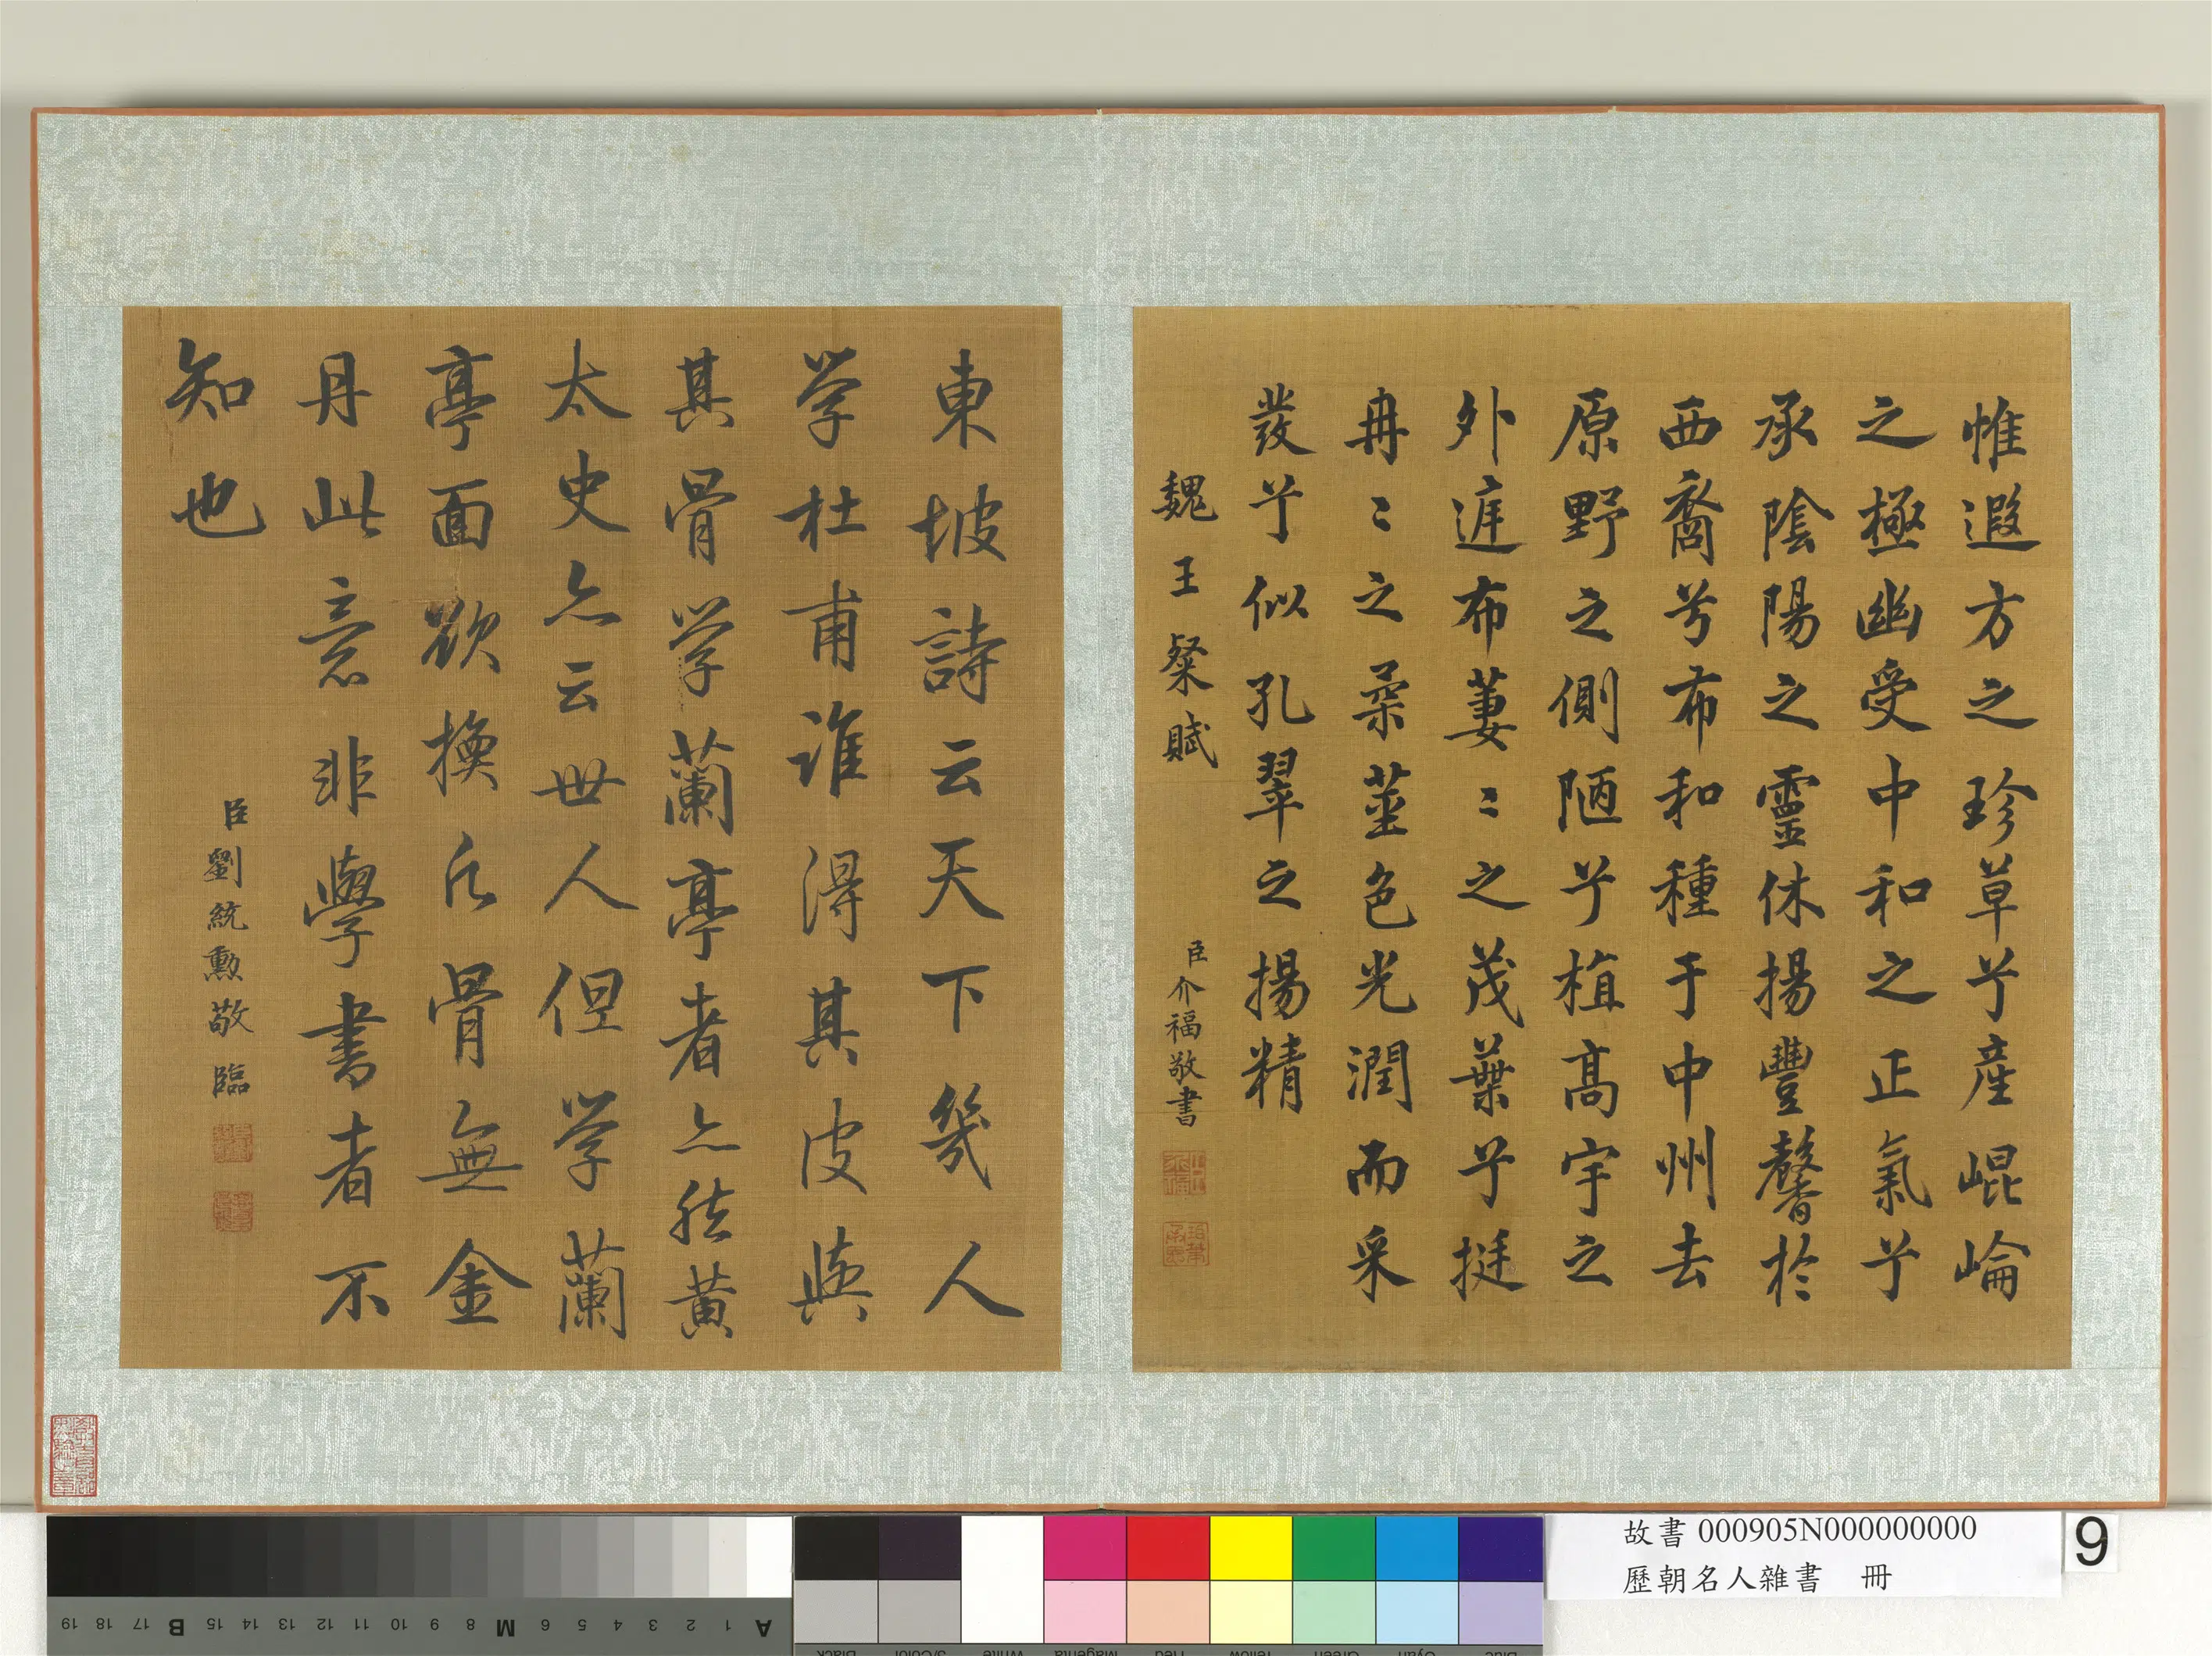 惟遐方之珍草兮產崐崘
之極幽受中和之正氣兮
承陰陽之靈休揚豐馨於
西裔兮布和種于中州去
原野之側陋兮植高宇之
外庭布萋〻之茂葉兮挺
冉〻之柔莖色光潤而采
發兮似孔翠之揚精
魏王粲賦
臣介福敬書
東坡詩云天下幾人
学杜甫誰得其皮與
其骨学蘭亭者亦然黃
太史亦云世人但学蘭
亭面欲換凡骨無金
丹此意非學書者不
知也
臣劉統勳敬臨
故書 000905N000000000
歷朝名人雜書 冊
9
A 1 2 3 4 5 6 M 8 9 10 11 12 13 14 15 B 17 18 19
Blue Cyan Green Yellow Red Magenta White 3/Color Black